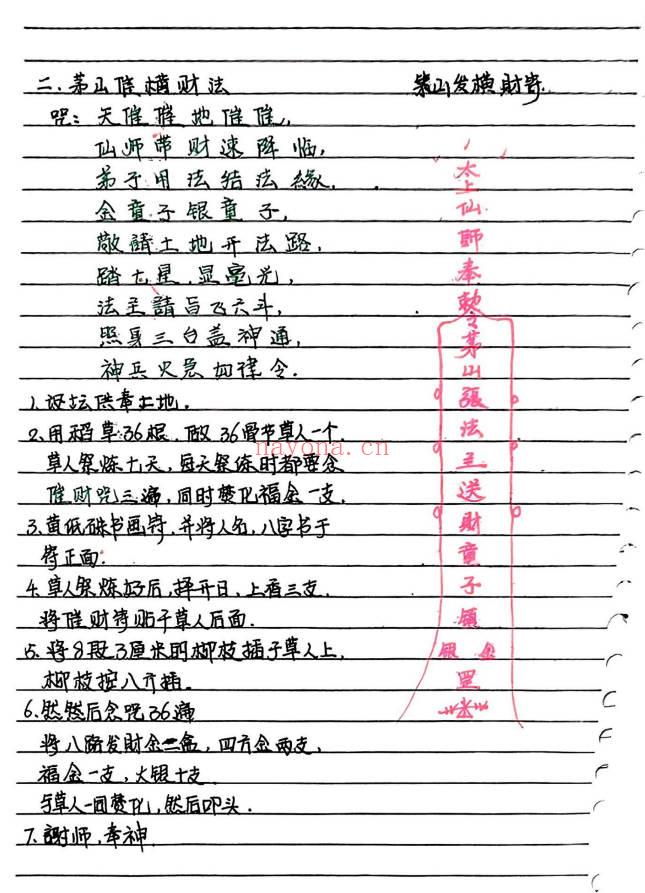 二.茅山催横财法
茅山发横財符
咒：天催催地催催，
仙师带财速降临，
弟子用法结法緣，
金童子银童子，
敬請土地开法路，
踏七星，显毫光，
法主請与飞六斗，
照身三台盖神通，
神兵火急如律令．
1.设坛供奉土地．
2.用稻草36根，做36骨节草人一个
草人祭炼七天，每天祭炼时都要念
催财咒三遍，同时焚化福金一支．
3.黄纸硃书画符，并将人名，八字书于
符正面．
4.草人祭炼好后，择开日，上香三支．
将催财符贴于草人后面．
5.将8段3厘米的柳枝插于草人上，
柳枝按八开插．
6.然然后念咒36遍
将八路发財金二盒，四方金两支，
福金一支，火银十支
与草人一同焚化，然后叩头．
7.謝师，奉神
太上仙師奉勅令茅山張法主送財童子領
银 金
罡
nayona.cn